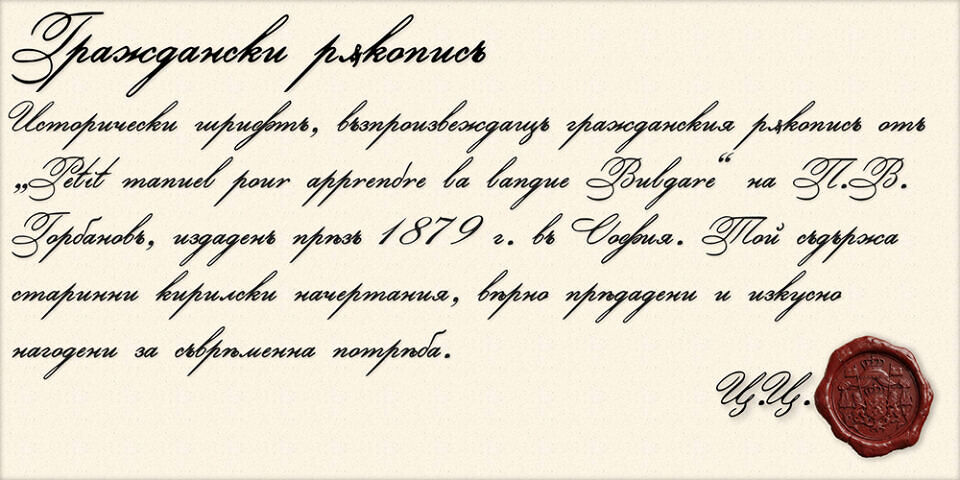 Граждански рѫкописъ
Исторически шрифтъ, възпроизвеждащъ гражданския рѫкописъ отъ
„Petit manuel pour apprendre la langue Bulgare“ на П.В.
Горбановъ, издаденъ прѣзъ 1879 г. въ София. Той съдържа
старинни кирилски начертания, вѣрно прѣдадени и изкусно
нагодени за съврѣменна потрѣба.
Ц.Ц.